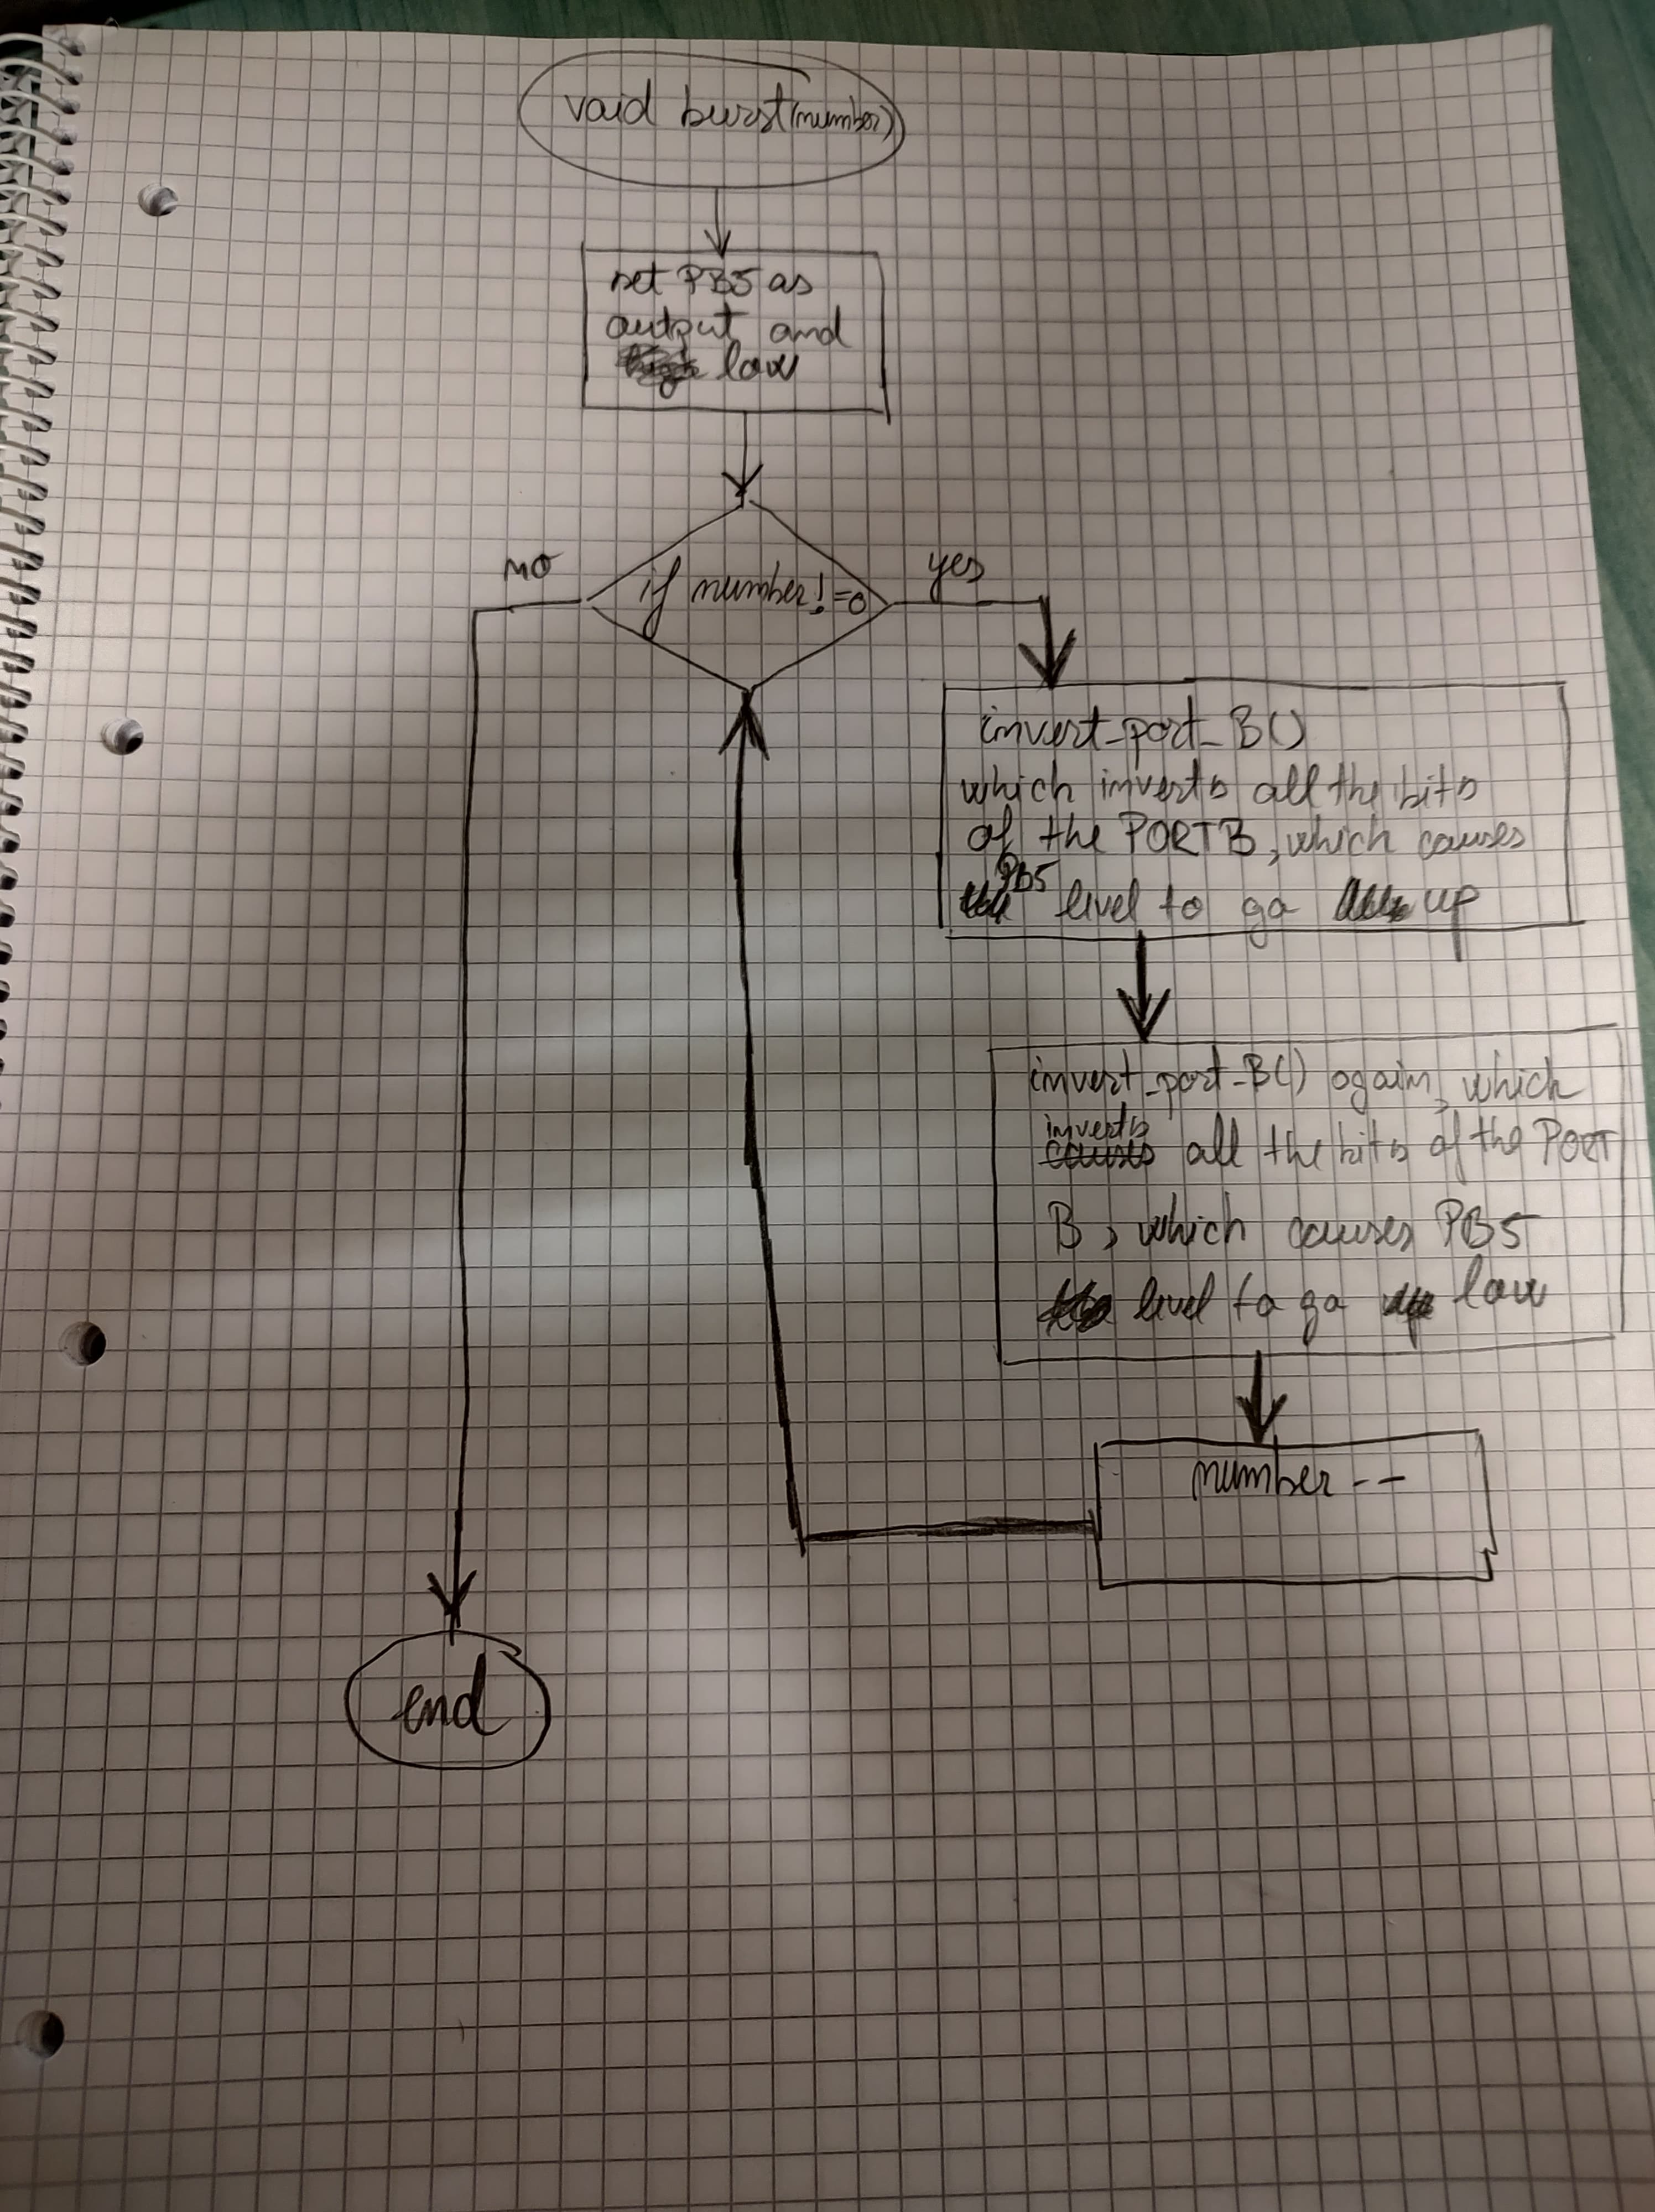 void burst(number)
set PB5 as
output and
low
no
if number!=0
yes
invert_port_B()
which inverts all the bits
of the PORTB, which causes
PB5
level to go up
invert_port_B() again, which
inverts
causes all the bits of the PORT
B, which causes PB5
level to go up low
number --
end